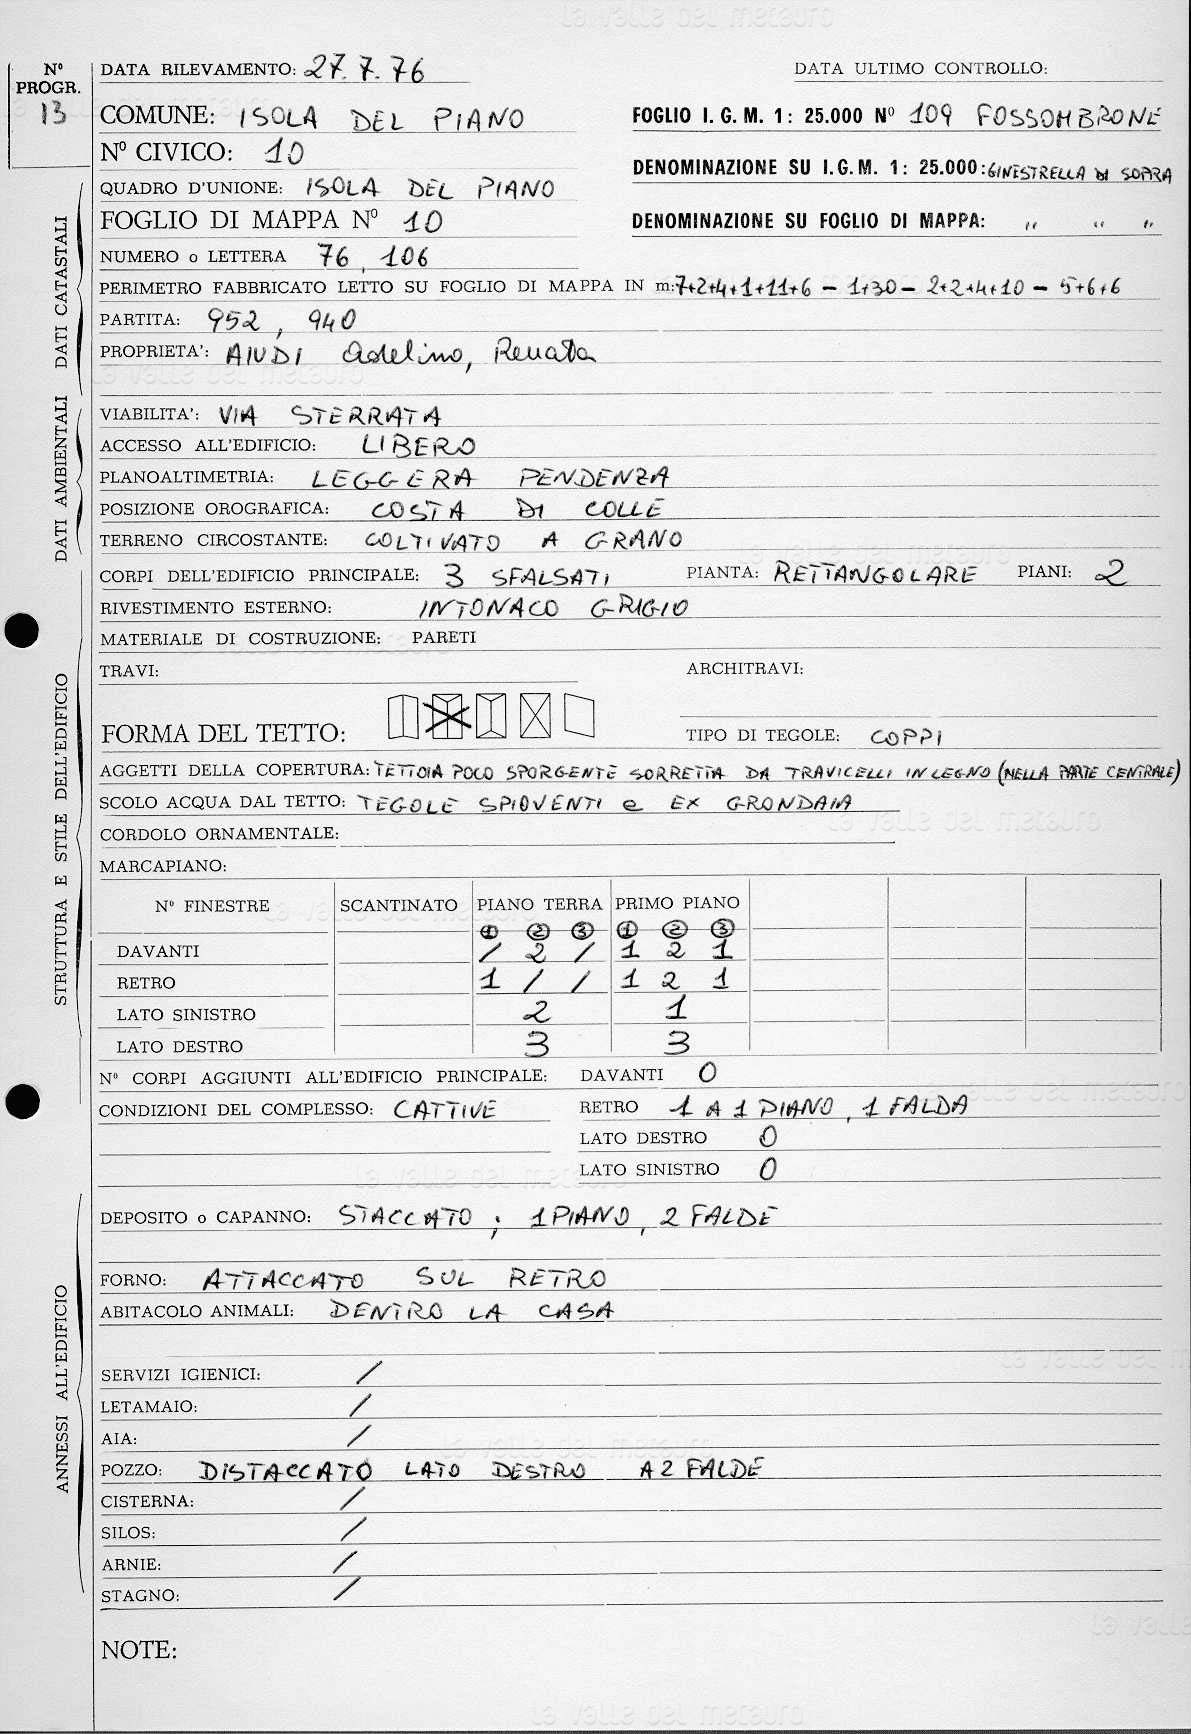 Nº PROGR. 13
DATA RILEVAMENTO: 27.7.76 DATA ULTIMO CONTROLLO:
COMUNE: ISOLA DEL PIANO FOGLIO I.G.M. 1: 25.000 Nº 109 FOSSOMBRONE
Nº CIVICO: 10 DENOMINAZIONE SU I.G.M. 1: 25.000: GINESTRELLA DI SOPRA
QUADRO D'UNIONE: ISOLA DEL PIANO
FOGLIO DI MAPPA Nº 10 DENOMINAZIONE SU FOGLIO DI MAPPA: " " "
NUMERO o LETTERA 76, 106
PERIMETRO FABBRICATO LETTO SU FOGLIO DI MAPPA IN m: 7+2+4+1+11+6 - 1+30 - 2+2+4+10 - 5+6+6
PARTITA: 952, 940
PROPRIETA': AIUDI Adelino, Renata
DATI CATASTALI
VIABILITA': VIA STERRATA
ACCESSO ALL'EDIFICIO: LIBERO
PLANOALTIMETRIA: LEGGERA PENDENZA
POSIZIONE OROGRAFICA: COSTA DI COLLE
TERRENO CIRCOSTANTE: COLTIVATO A GRANO
DATI AMBIENTALI
CORPI DELL'EDIFICIO PRINCIPALE: 3 SFALSATI PIANTA: RETTANGOLARE PIANI: 2
RIVESTIMENTO ESTERNO: INTONACO GRIGIO
MATERIALE DI COSTRUZIONE: PARETI
TRAVI: ARCHITRAVI:
FORMA DEL TETTO: TIPO DI TEGOLE: COPPI
AGGETTI DELLA COPERTURA: TETTOIA POCO SPORGENTE SORRETTA DA TRAVICELLI IN LEGNO (NELLA PARTE CENTRALE)
SCOLO ACQUA DAL TETTO: TEGOLE SPIOVENTI e EX GRONDAIA
CORDOLO ORNAMENTALE:
MARCAPIANO:
Nº FINESTRE SCANTINATO PIANO TERRA PRIMO PIANO
1 2 3 1 2 3
DAVANTI / 2 / 1 2 1
RETRO 1 / / 1 2 1
LATO SINISTRO 2 1
LATO DESTRO 3 3
STRUTTURA E STILE DELL'EDIFICIO
Nº CORPI AGGIUNTI ALL'EDIFICIO PRINCIPALE: DAVANTI 0
CONDIZIONI DEL COMPLESSO: CATTIVE RETRO 1 A 1 PIANO, 1 FALDA
LATO DESTRO 0
LATO SINISTRO 0
DEPOSITO o CAPANNO: STACCATO; 1 PIANO, 2 FALDE
FORNO: ATTACCATO SUL RETRO
ABITACOLO ANIMALI: DENTRO LA CASA
SERVIZI IGIENICI: /
LETAMAIO: /
AIA: /
POZZO: DISTACCATO LATO DESTRO A 2 FALDE
CISTERNA: /
SILOS: /
ARNIE: /
STAGNO: /
ANNESSI ALL'EDIFICIO
NOTE:
la valle del metauro